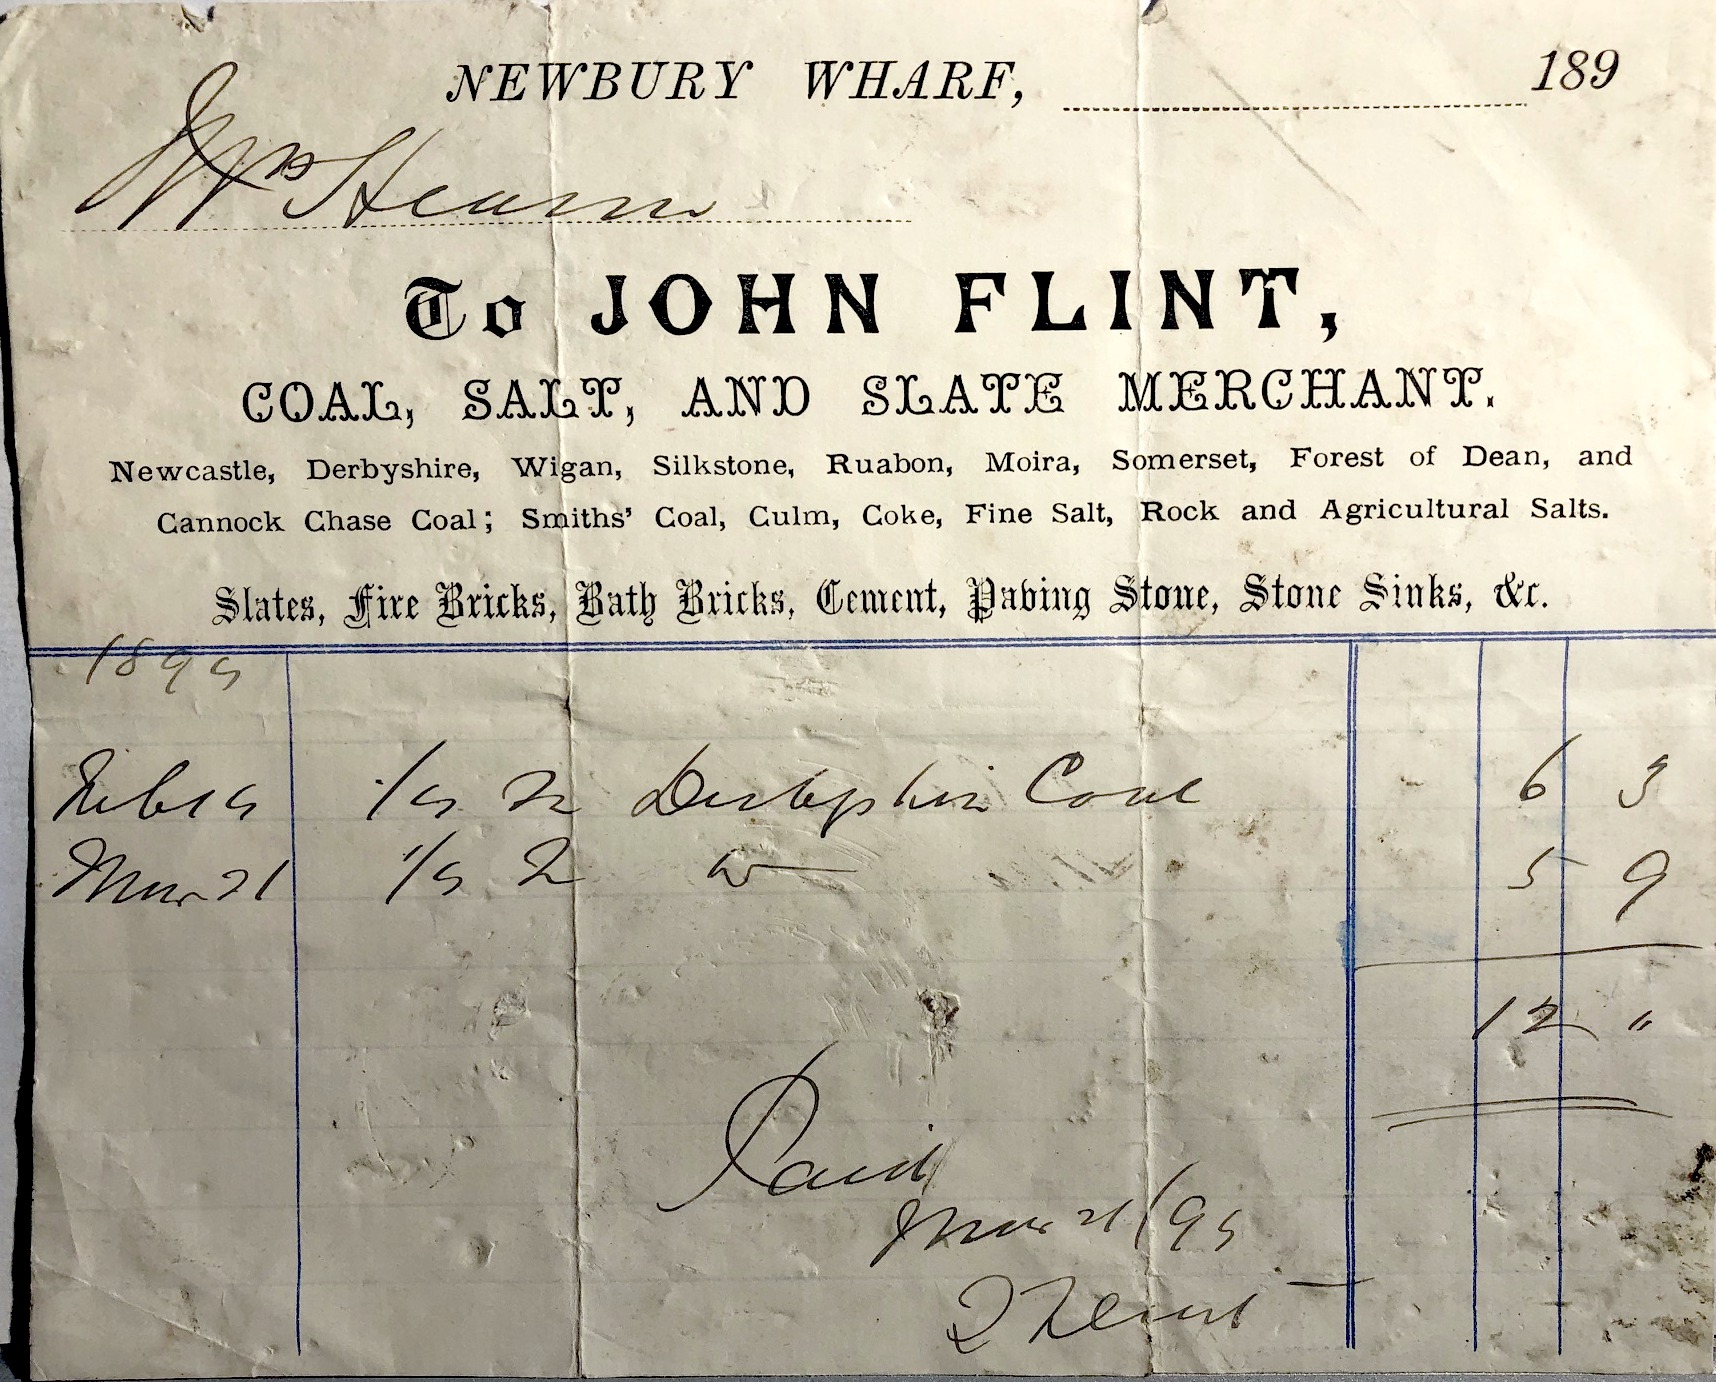 NEWBURY WHARF, 189
Mrs Hearn
To JOHN FLINT,
COAL, SALT, AND SLATE MERCHANT.
Newcastle, Derbyshire, Wigan, Silkstone, Ruabon, Moira, Somerset, Forest of Dean, and
Cannock Chase Coal; Smiths' Coal, Culm, Coke, Fine Salt, Rock and Agricultural Salts.
Slates, Fire Bricks, Bath Bricks, Cement, Paving Stone, Stone Sinks, &c.
1895
Feb 15 Derbyshire Coal 6 3
Mar 21 5 9
12 "
Paid
Mar 21/95
J Flint